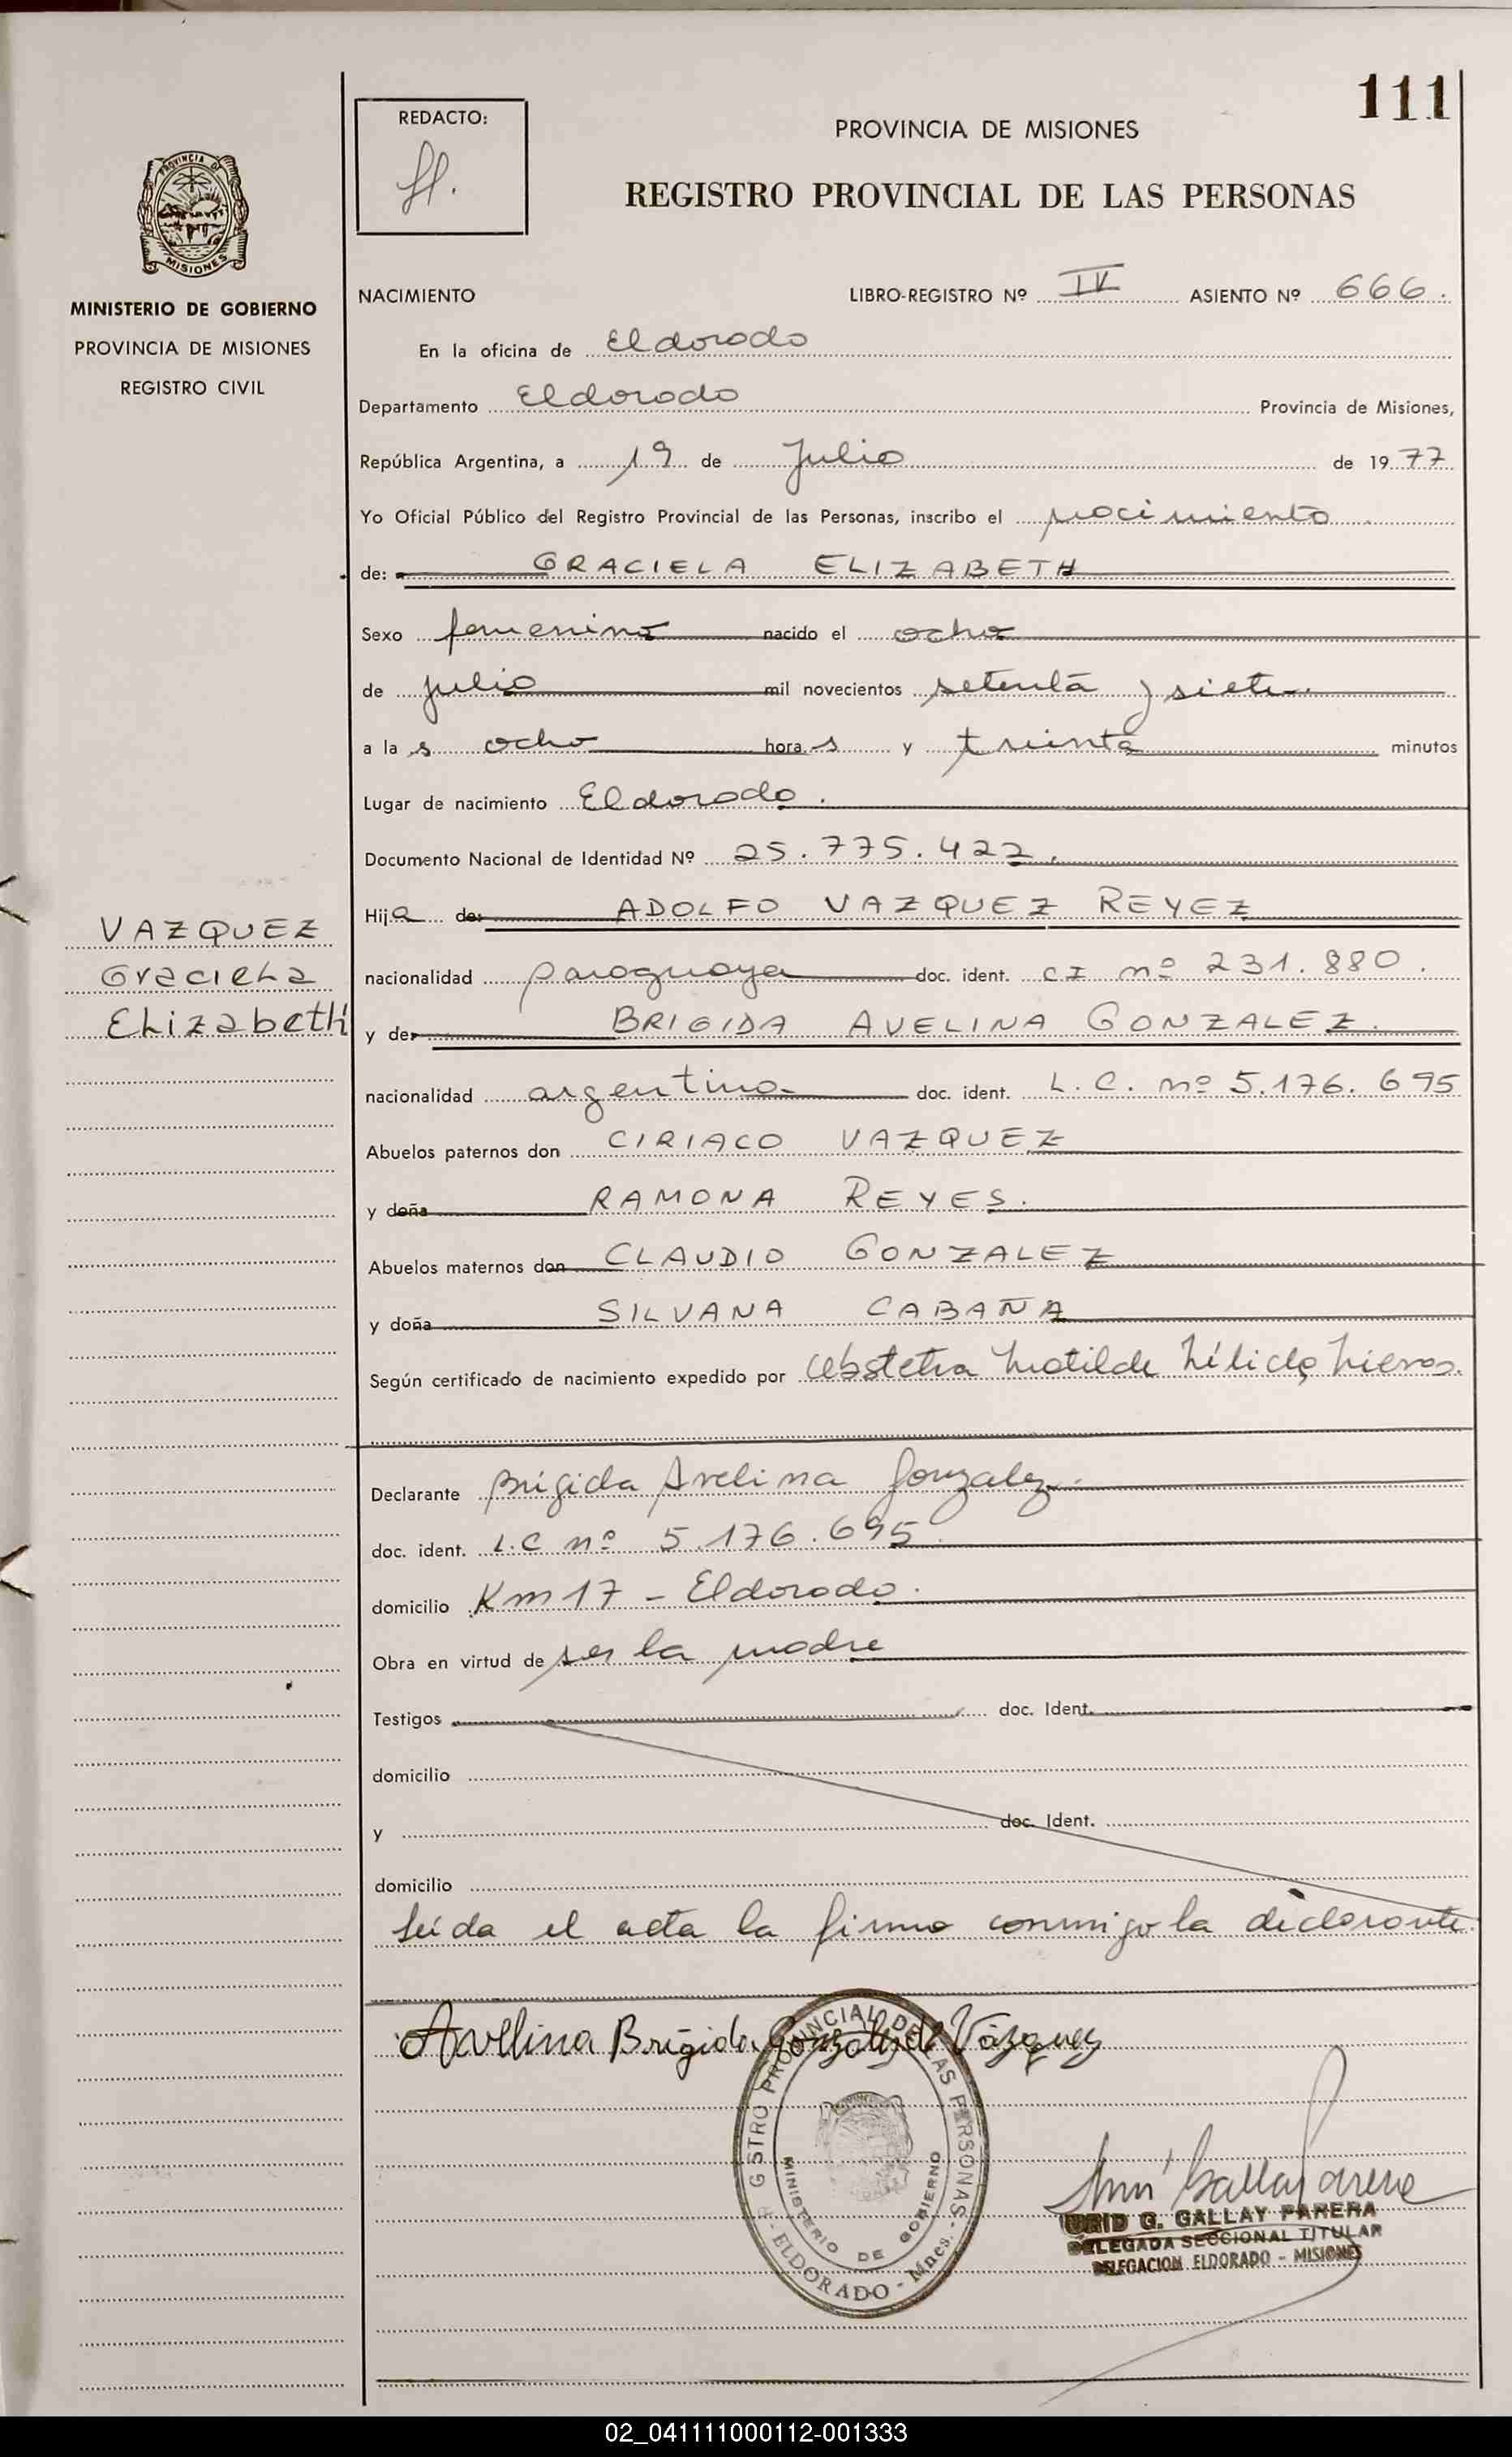 111
REDACTO:
PROVINCIA DE MISIONES
REGISTRO PROVINCIAL DE LAS PERSONAS
PROVINCIA DE
MISIONES
MINISTERIO DE GOBIERNO
PROVINCIA DE MISIONES
REGISTRO CIVIL
NACIMIENTO LIBRO-REGISTRO Nº IV ASIENTO Nº 666.
En la oficina de Eldorado
Departamento Eldorado Provincia de Misiones,
República Argentina, a 19 de Julio de 1977
Yo Oficial Público del Registro Provincial de las Personas, inscribo el nacimiento
de: GRACIELA ELIZABETH
Sexo femenino nacido el ocho
de julio mil novecientos setenta y siete.
a las ocho horas y treinta minutos
Lugar de nacimiento Eldorado.
Documento Nacional de Identidad Nº 25.775.422.
Hija de: ADOLFO VAZQUEZ REYEZ
VAZQUEZ
Graciela
Elizabeth
nacionalidad paraguaya doc. ident. CI nº 231.880.
y de: BRIGIDA AVELINA GONZALEZ.
nacionalidad argentina doc. ident. L.C. nº 5.176.695
Abuelos paternos don CIRIACO VAZQUEZ
y doña RAMONA REYES.
Abuelos maternos don CLAUDIO GONZALEZ
y doña SILVANA CABAÑA
Según certificado de nacimiento expedido por Obstetra Matilde
Declarante Brígida Avelina Gonzalez.
doc. ident. L.C nº 5.176.695.
domicilio Km 17 - Eldorado.
Obra en virtud de ser la madre
Testigos doc. Ident.
domicilio
y doc. Ident.
domicilio
Leída el acta la firma conmigo la declarante.
Avellina Brígida Gonzalez de Vázquez
GISTRO PROVINCIAL DE LAS PERSONAS
MINISTERIO DE GOBIERNO
R - ELDORADO - Mnes. -
G. GALLAY PARERA
DELEGADA SECCIONAL TITULAR
DELEGACION ELDORADO - MISIONES
02_041111000112-001333